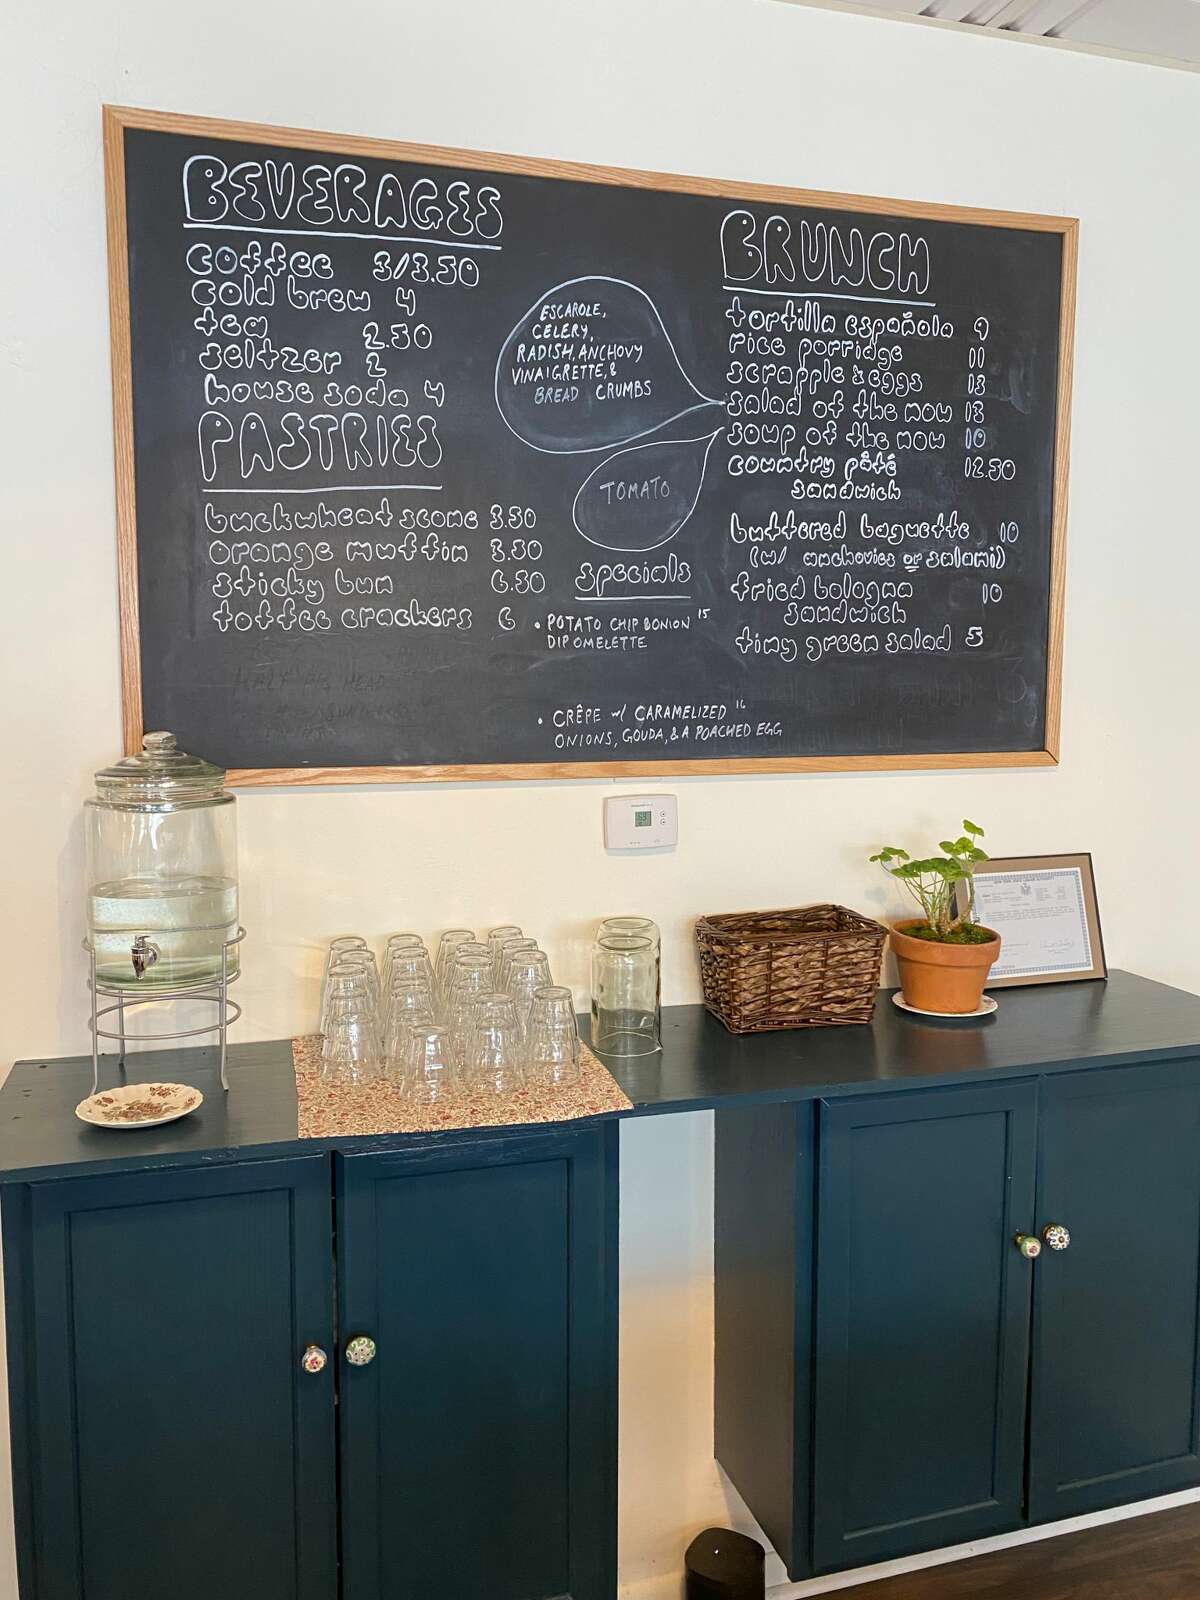 BEVERAGES
coffee 3/3.50
cold brew 4
tea 2.50
seltzer 2
house soda 4
PASTRIES
buckwheat scone 3.50
orange muffin 3.50
sticky bun 6.50
toffee crackers 6
ESCAROLE,
CELERY,
RADISH, ANCHOVY
VINAIGRETTE, &
BREAD CRUMBS
TOMATO
specials
• POTATO CHIP & ONION 15
DIP OMELETTE
• CRÊPE w/ CARAMELIZED 16
ONIONS, GOUDA, & A POACHED EGG
BRUNCH
tortilla española 9
rice porridge 11
scrapple & eggs 13
salad of the now 13
soup of the now 10
country pâté 12.50
sandwich
buttered baguette 10
(w/ anchovies or salami)
fried bologna 10
sandwich
tiny green salad 5